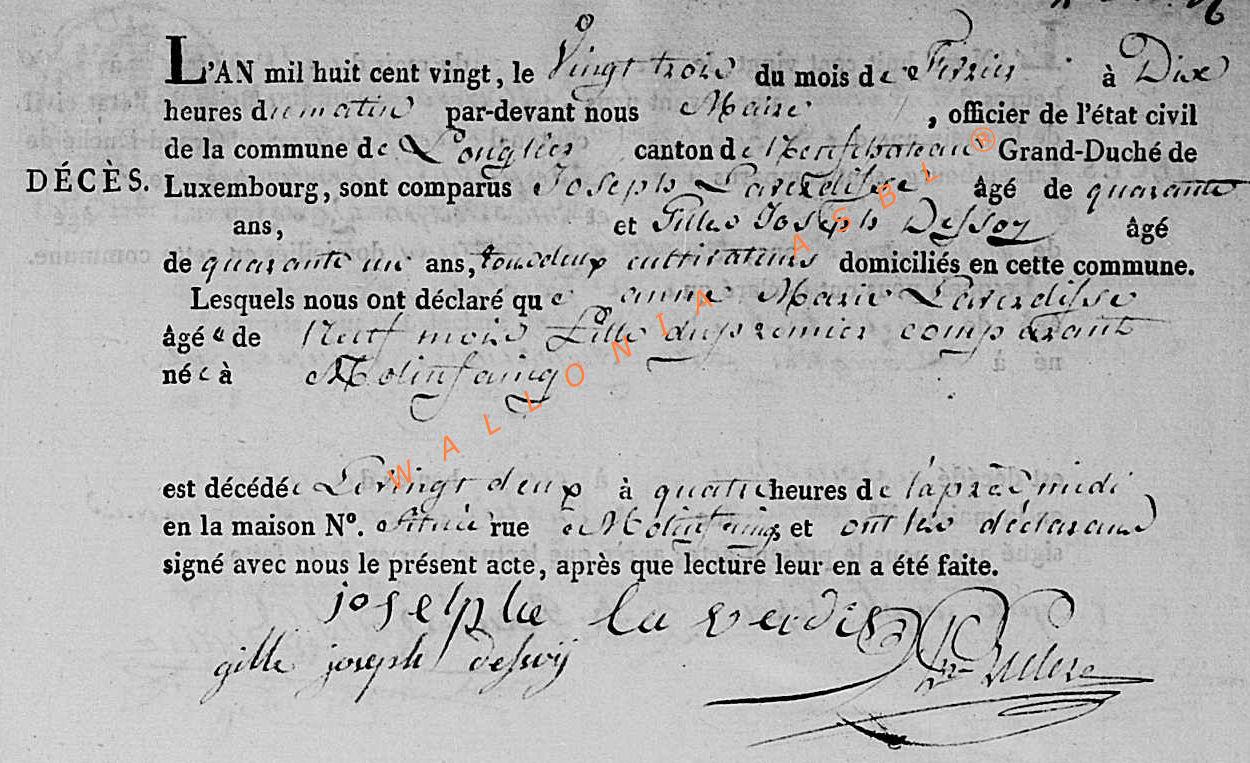 L'AN mil huit cent vingt, le Vingt trois du mois de Fevrier à Dix
heures du matin par-devant nous Maire, officier de l'état civil
de la commune de Longlier canton de Neufchateau Grand-Duché de
DÉCÈS. Luxembourg, sont comparus Joseph Laverdisse âgé de quarante
ans, et Gilles Joseph Dessoy âgé
de quarante un ans, tous deux cultivateurs domiciliés en cette commune.
Lesquels nous ont déclaré que anne Marie Laverdisse
âgée de Neuf mois fille du premier comparant
née à Molinfaing
est décédée Le vingt deux à quatre heures de l'après midi
en la maison N°. située rue à Molinfaing et ont les déclarans
signé avec nous le présent acte, après que lecture leur en a été faite.
joselphe la verdis
gille joseph dessoij
WALLONIA ASBL ®